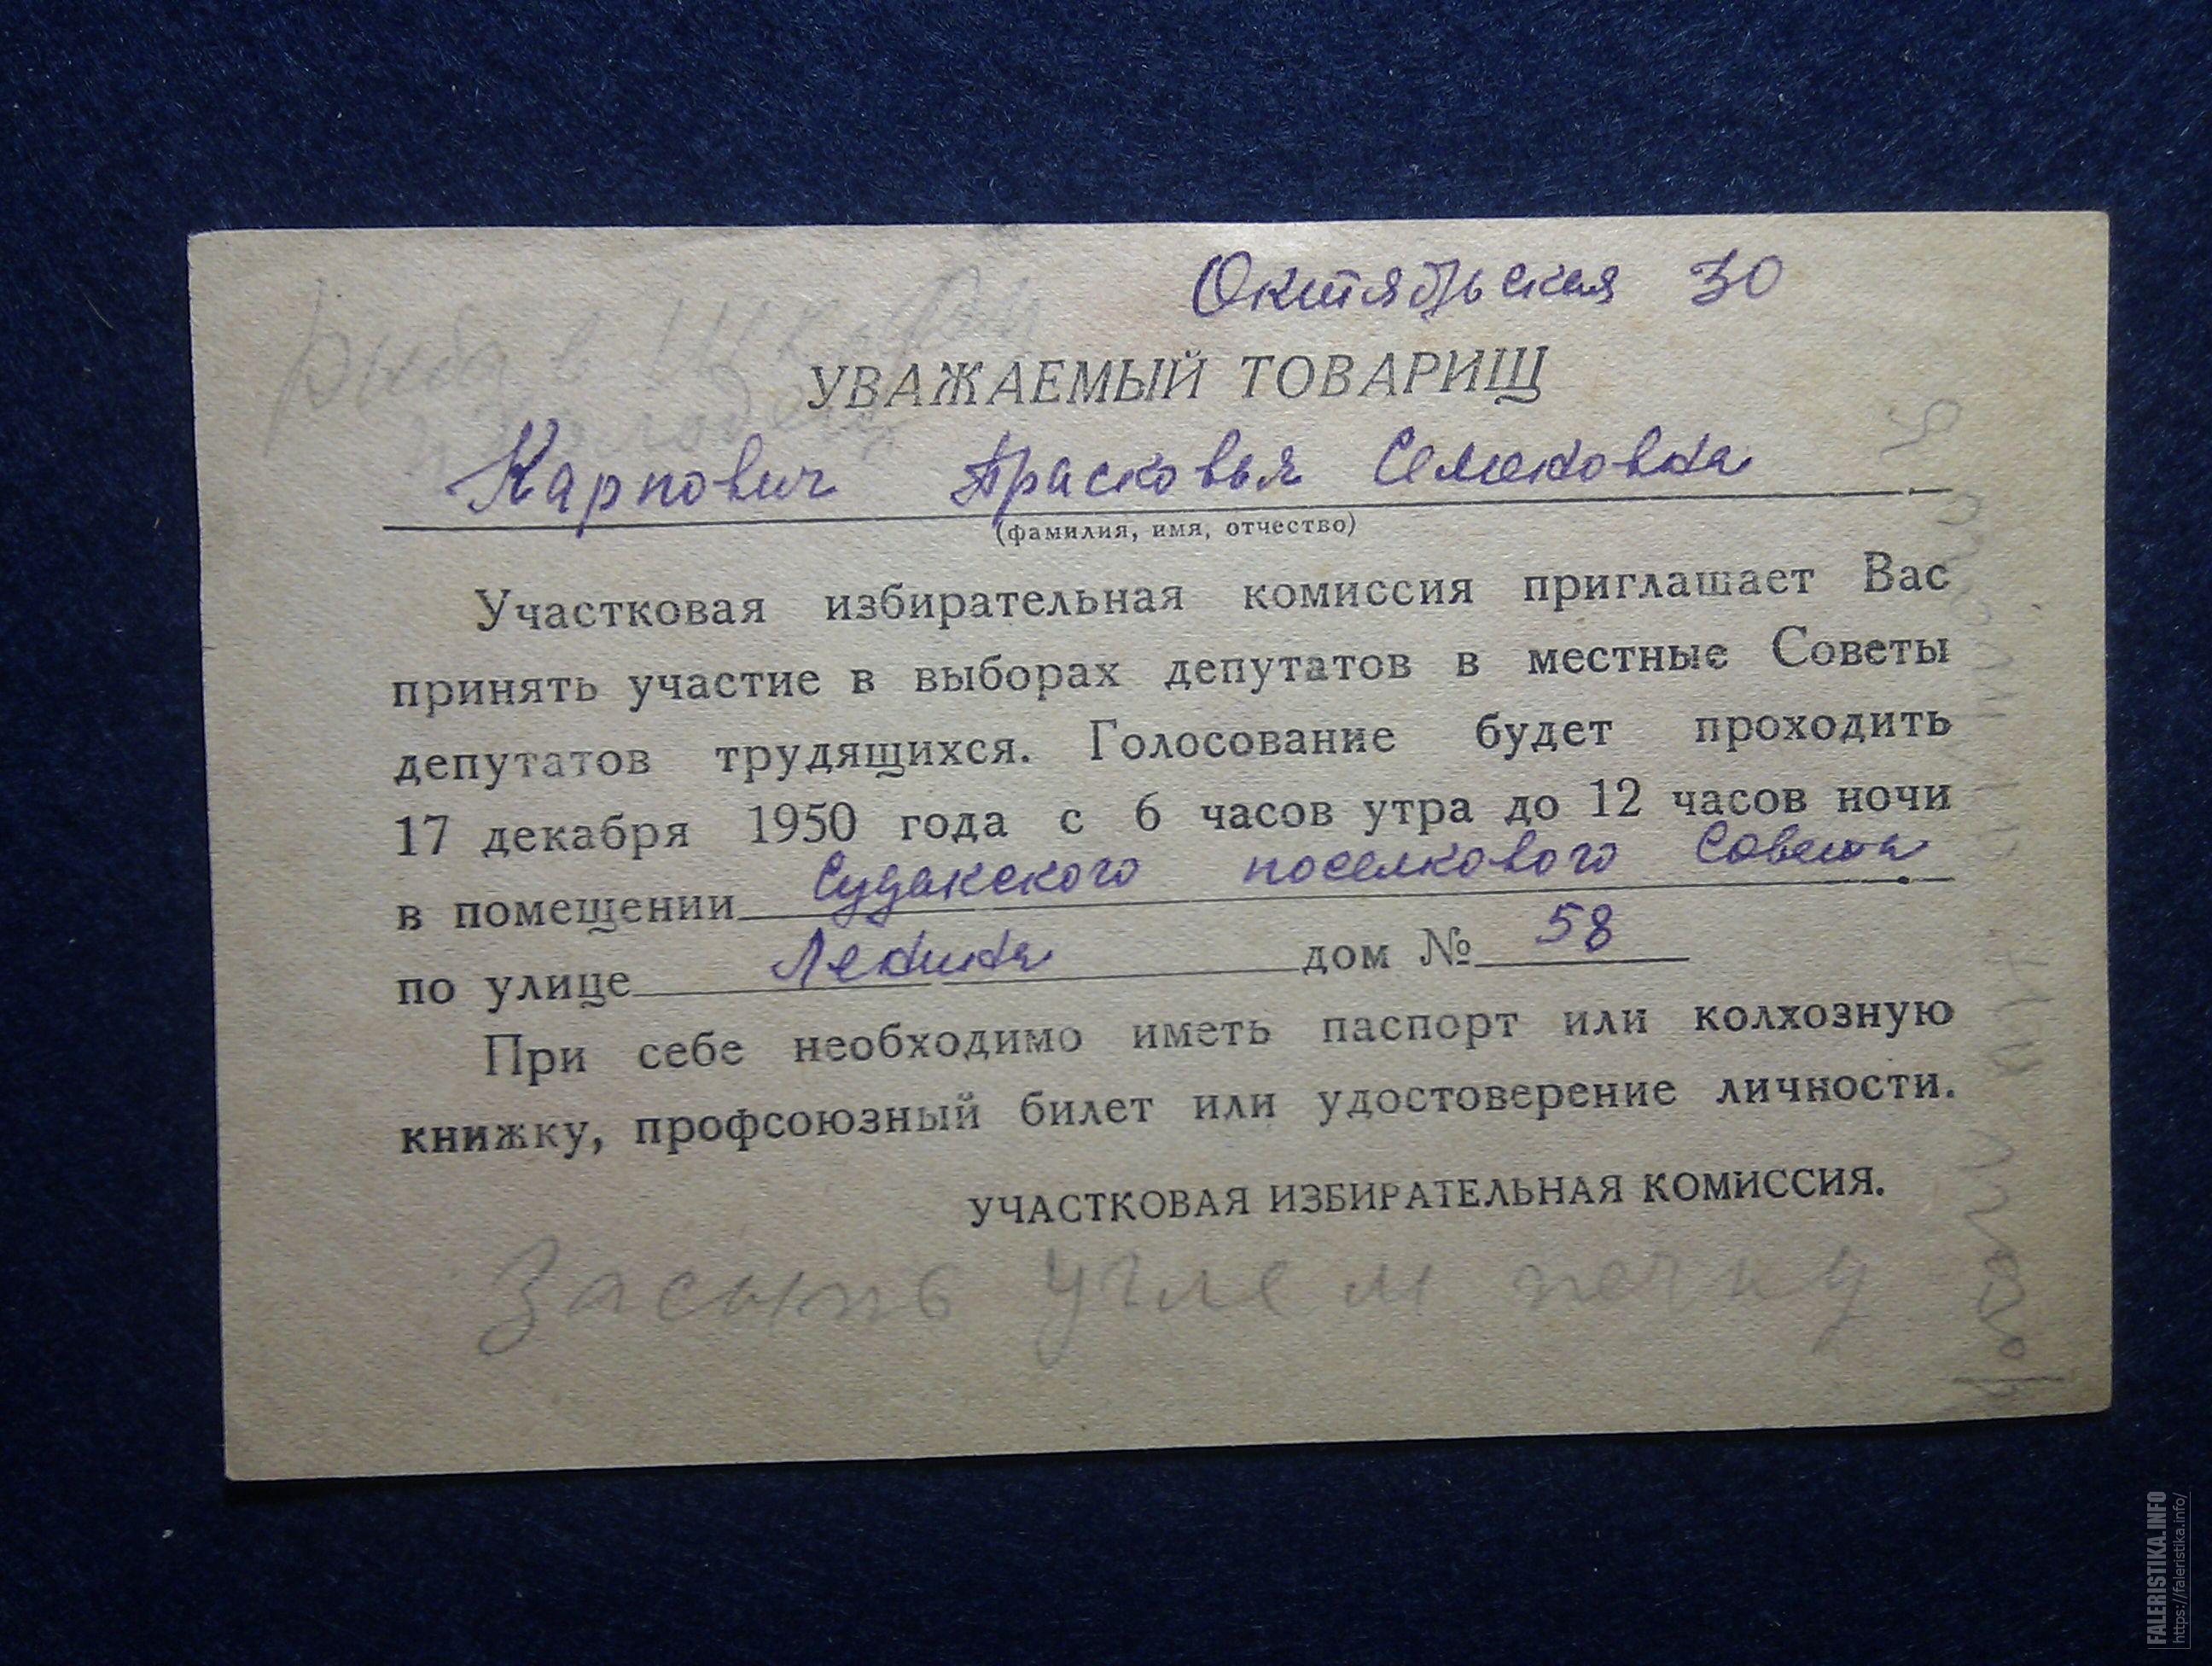 Октябрьская 30
рыба в шкафу
УВАЖАЕМЫЙ ТОВАРИЩ
Карпович Прасковья Семеновна
(фамилия, имя, отчество)
Участковая избирательная комиссия приглашает Вас
принять участие в выборах депутатов в местные Советы
депутатов трудящихся. Голосование будет проходить
17 декабря 1950 года с 6 часов утра до 12 часов ночи
в помещении Судакского поселкового Совета
по улице Ленина дом № 58
При себе необходимо иметь паспорт или колхозную
книжку, профсоюзный билет или удостоверение личности.
УЧАСТКОВАЯ ИЗБИРАТЕЛЬНАЯ КОМИССИЯ.
Засыпь углем печку
FALERISTIKA.INFO
https://faleristika.info/